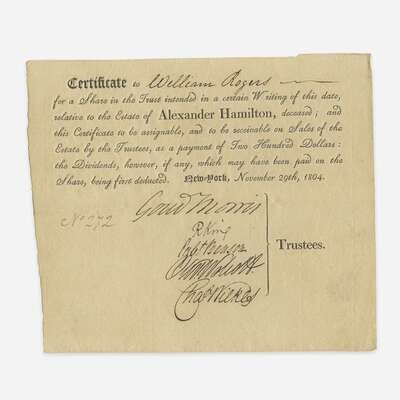 Certificate to William Rogers
for a Share in the Trust intended in a certain Writing of this date,
relative to the Estate of Alexander Hamilton, deceased; and
this Certificate to be assignable, and to be receivable on Sales of the
Estate by the Trustees, as a payment of Two Hundred Dollars:
the Dividends, however, if any, which may have been paid on the
Share, being first deducted. New-York, November 29th, 1804.
Gouv Morris
No 272
R. King
Egbt Benson
Oliv Wolcott
Trustees.
Chas Wilkes